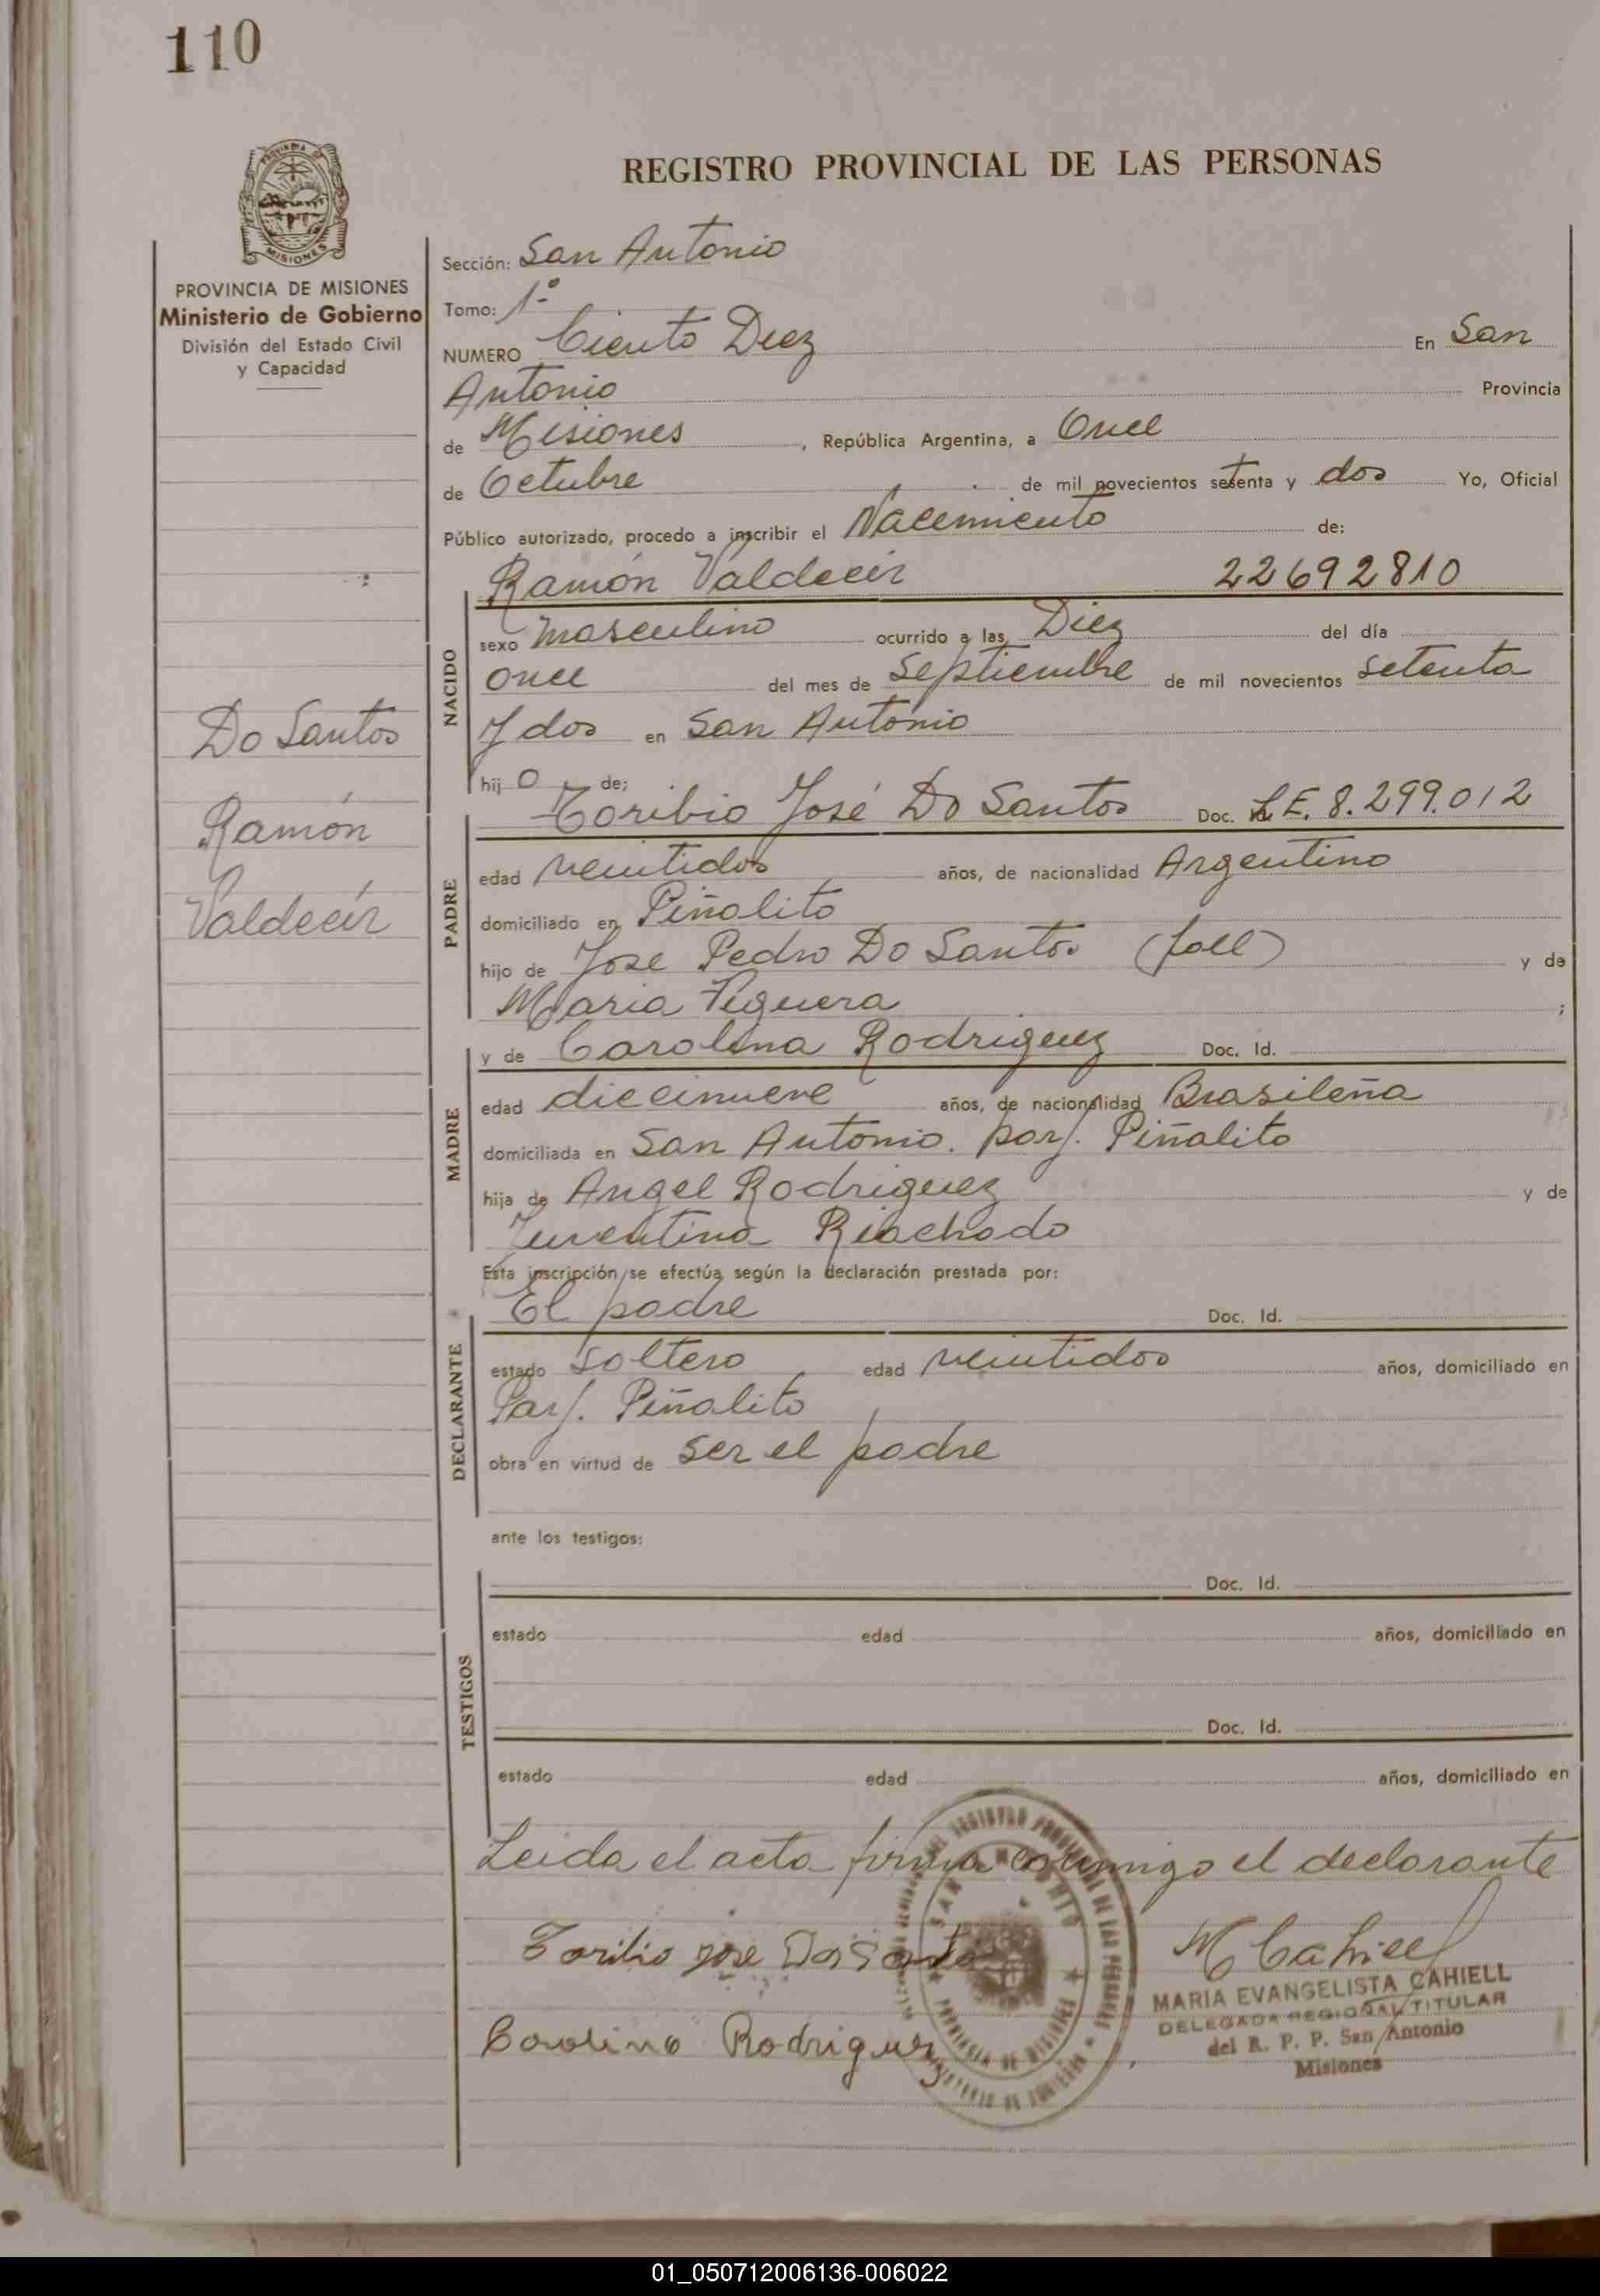 110
PROVINCIA DE
MISIONES
REGISTRO PROVINCIAL DE LAS PERSONAS
PROVINCIA DE MISIONES
Ministerio de Gobierno
División del Estado Civil
y Capacidad
Do Santos
Ramón
Valdecír
Sección: San Antonio
Tomo: 1º
NUMERO Ciento Diez En San
Antonio Provincia
de Misiones, República Argentina, a Once
de Octubre de mil novecientos setenta y dos Yo, Oficial
Público autorizado, procedo a inscribir el Nacimiento de:
Ramón Valdecír 22692810
NACIDO
sexo masculino ocurrido a las Diez del día
once del mes de septiembre de mil novecientos setenta
y dos en San Antonio
hij o de:
Toribio José Do Santos Doc. L.E. 8.299.012
PADRE
edad veintidos años, de nacionalidad Argentino
domiciliado en Piñalito
hijo de Jose Pedro Do Santos (fall) y de
Maria Piguera ;
y de Carolina Rodriguez Doc. Id.
MADRE
edad diecinueve años, de nacionalidad Brasileña
domiciliada en San Antonio. parj. Piñalito
hija de Angel Rodriguez y de
Juventina Riachado
Esta inscripción se efectúa según la declaración prestada por:
El padre Doc. Id.
DECLARANTE
estado soltero edad veintidos años, domiciliado en
Parj. Piñalito
obra en virtud de ser el padre
ante los testigos:
Doc. Id.
TESTIGOS
estado edad años, domiciliado en
Doc. Id.
estado edad años, domiciliado en
Leida el acta firma conmigo el declarante
Toribio Jose Dos Santo
M Cahiell
MARIA EVANGELISTA CAHIELL
DELEGADA REGIONAL TITULAR
del R. P. P. San Antonio
Misiones
Carolina Rodriguez
01_050712006136-006022